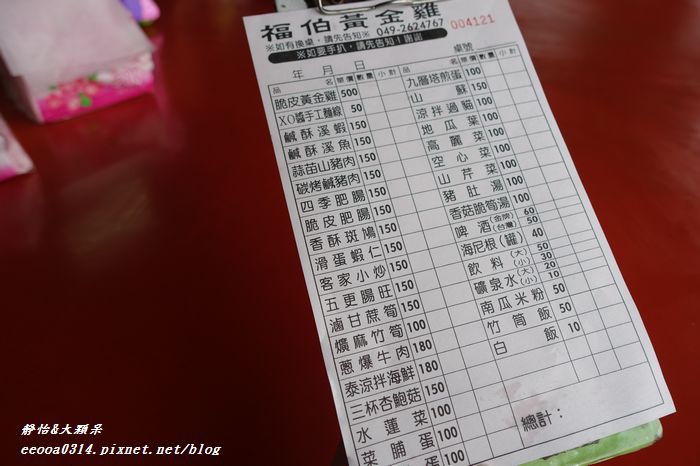 福伯黃金雞
※如有換桌，請先告知※ 049-2624767 004121
※如要手扒，請先告知！謝謝
年 月 日 桌號
品 名 單價 數量 小計 品 名 單價 數量 小計
脆皮黃金雞 500
XO醬手工麵線 50
鹹酥溪蝦 150
鹹酥溪魚 150
蒜苗山豬肉 150
碳烤鹹豬肉 150
四季肥腸 150
脆皮肥腸 150
香酥斑鳩 150
滑蛋蝦仁 150
客家小炒 150
五更腸旺 150
滷甘蔗筍 150
爌麻竹筍 100
蔥爆牛肉 180
泰涼拌海鮮 180
三杯杏鮑菇 150
水蓮菜 100
菜脯蛋 100
九層塔煎蛋 100
山蘇 150
涼拌過貓 100
地瓜葉 100
高麗菜 100
空心菜 100
山芹菜 100
豬肚湯 100
香菇脆筍湯 100
啤酒(金牌) 60
(台灣) 50
海尼根(罐) 40
飲料(大) 50
(小) 30
礦泉水(大) 20
(小) 10
南瓜米粉 50
竹筒飯 50
白飯 10
總計：
靜怡&大顆呆
eeooa0314.pixnet.net/blog